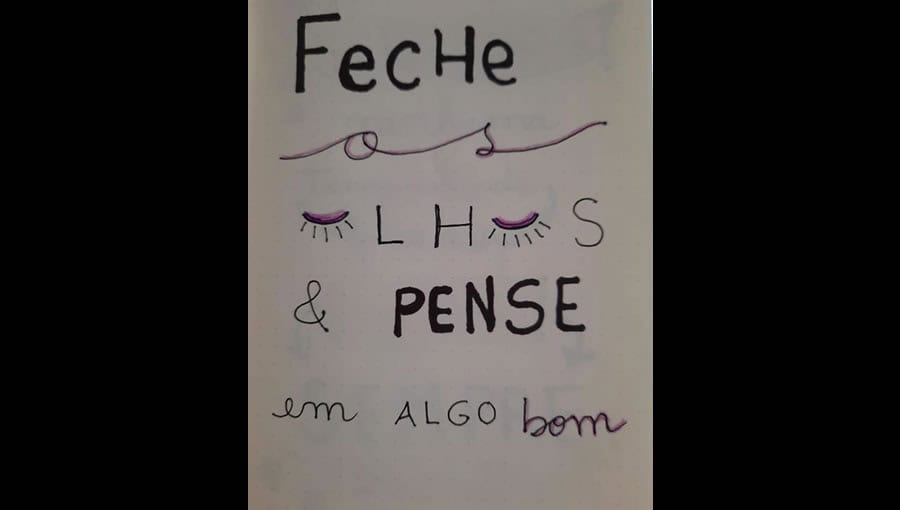 FecHe
os
OLHOS
& PENSE
em ALGO bom